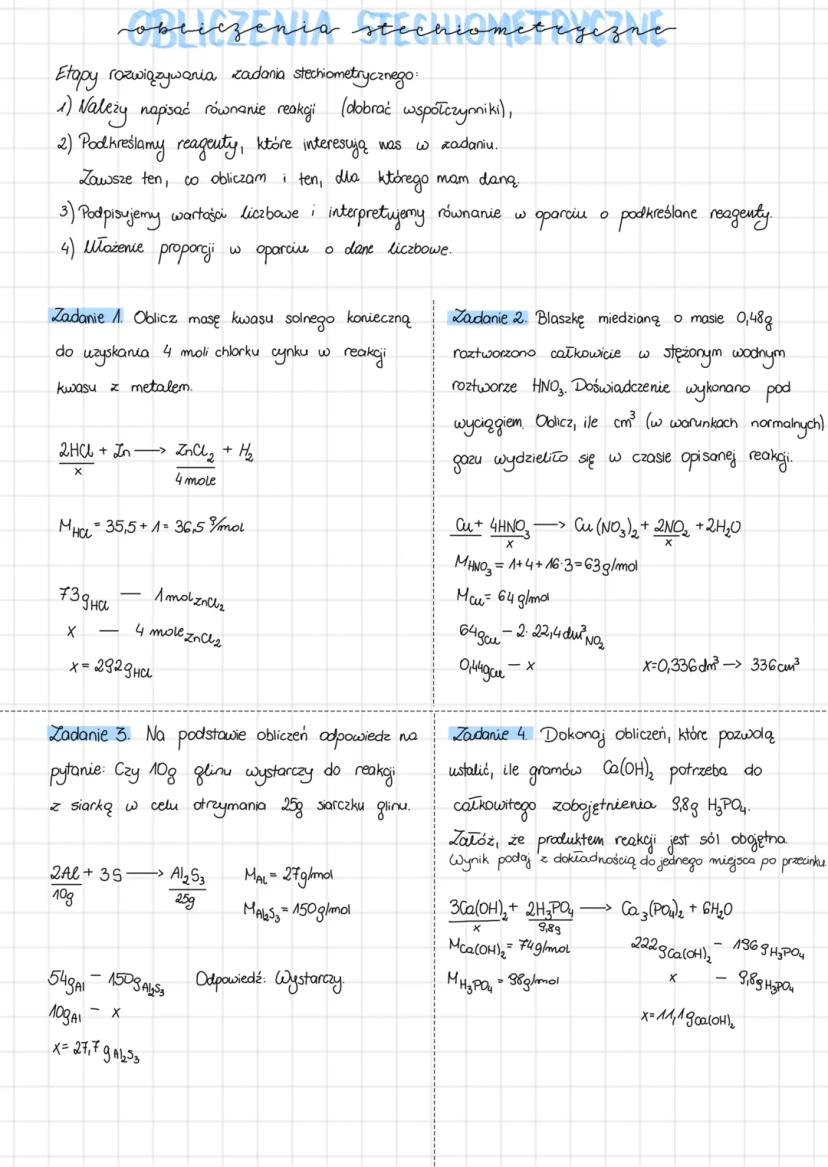 OBLICZENIA STECHIOMETRYCZNE
obliczenia stechiometryczne
Etapy rozwiązywania zadania stechiometrycznego:
1) Należy napisać równanie reakcji (dobrać współczynniki),
2) Podkreślamy reagenty, które interesują nas w zadaniu.
Zawsze ten, co obliczam i ten, dla którego mam daną.
3) Podpisujemy wartości liczbowe i interpretujemy równanie w oparciu o podkreślane reagenty.
4) Ułożenie proporcji w oparciu o dane liczbowe.
Zadanie 1. Oblicz masę kwasu solnego konieczną
do uzyskania 4 moli chlorku cynku w reakcji
kwasu z metalem.
2HCl + Zn ⟶ ZnCl₂ + H₂
x 4 mole
M HCl = 35,5 + 1 = 36,5 g/mol
73g HCl — 1 mol ZnCl₂
x — 4 mole ZnCl₂
x = 292g HCl
Zadanie 2. Blaszkę miedzianą o masie 0,48g
roztworzono całkowicie w stężonym wodnym
roztworze HNO₃. Doświadczenie wykonano pod
wyciągiem. Oblicz, ile cm³ (w warunkach normalnych)
gazu wydzieliło się w czasie opisanej reakcji.
Cu + 4HNO₃ ⟶ Cu(NO₃)₂ + 2NO₂ + 2H₂O
x x
M HNO₃ = 1+4+16·3=63g/mol
M Cu = 64 g/mol
64g Cu – 2·22,4dm³ NO₂
0,44g Cu – x x=0,336dm³ → 336cm³
Zadanie 3. Na podstawie obliczeń odpowiedz na
pytanie: Czy 10g glinu wystarczy do reakcji
z siarką w celu otrzymania 25g siarczku glinu.
2Al + 3S ⟶ Al₂S₃ M Al = 27g/mol
10g 25g M Al₂S₃ = 150g/mol
54g Al – 150g Al₂S₃ Odpowiedź: Wystarczy.
10g Al – x
x = 27,7 g Al₂S₃
Zadanie 4. Dokonaj obliczeń, które pozwolą
ustalić, ile gramów Ca(OH)₂ potrzeba do
całkowitego zobojętnienia 9,8g H₃PO₄.
Załóż, że produktem reakcji jest sól obojętna.
Wynik podaj z dokładnością do jednego miejsca po przecinku.
3Ca(OH)₂ + 2H₃PO₄ ⟶ Ca₃(PO₄)₂ + 6H₂O
x 9,8g
M Ca(OH)₂ = 74g/mol 222g Ca(OH)₂ – 196g H₃PO₄
M H₃PO₄ = 98g/mol x – 9,8g H₃PO₄
x = 11,1g Ca(OH)₂